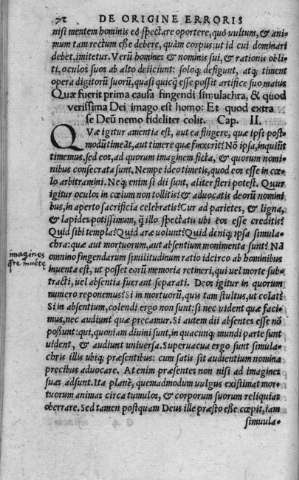 72 DE ORIGINE ERRORIS
nisi mentem hominis eò spectare oportere, quò uultum, & ani
mum tam rectum esse debere, quàm corpus: ut id cui dominari
debet, imitetur. Verū homines & nominis sui, & rationis obli
ti, oculos suos ab alto deijciunt: soloq; defigunt, atq; timent
opera digitorū suorū, quasi quicq̃ esse possit artifice suo maius
Quæ fuerit prima causa fingendi simulachra, & quod
verissima Dei imago est homo: Et quod extra
se Deū nemo fideliter colit. Cap. II.
QVæ igitur amentia est, aut ea fingere, quæ ipsi post
modū timeāt, aut timere quæ finxerīt? Nō ipsa, inquiūt
timemus, sed eos, ad quorum imaginem ficta, & quorum nomi
nibus consecrata sunt. Nempe ideo timetis, quod eos esse in cœ-
lo arbitramini. Neq; enim si dii sunt, aliter fieri potest. Quur
igitur oculos in cœlum non tollitis & aduocatis deorū nomi-
nibus, in aperto sacrificia celebratis? Cur ad parietes, & ligna,
& lapides potissimum, q̃ illo spectatis ubi eos esse creditis?
Quid sibi templa? Quid aræ uolunt? Quid deniq; ipsa simula
chra: quæ aut mortuorum, aut absentium monimenta sunt? Nā
imagines
omnino fingendarum similitudinum ratio idcirco ab hominibus
inuenta est, ut posset eorū memoria retineri, qui uel morte sub-
tracti, uel absentia fuerant separati. Deos igitur in quorum
numero reponemus? Si in mortuorū, quis tam stultus, ut colat?
Si in absentium, colendi ergo non sunt: si nec uident quæ facie
mus, nec audiunt quæ precamur. Si autem dii absentes esse nō
possunt: qui, quoniam diuini sunt, in quacunq; mundi parte sunt
uident, & audiunt uniuersa. Superuacua ergo sunt simula-
chris illis ubiq; præsentibus: cum satis sit audientium nomina
precibus aduocare. At enim præsentes non nisi ad imagines
suas adsunt. Ita planè, quemadmodum uulgus existimat mor-
tuorum animas circa tumulos, & corporum suorum reliquias
oberrare. Sed tamen postquam Deus ille præsto esse cœpit, iam
simula-